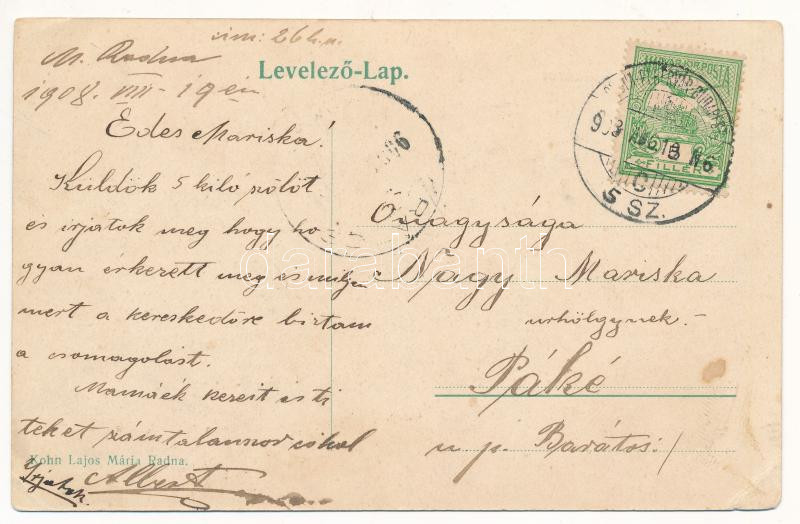 M. Radna
1908. VIII - 19 én
Levelező-Lap.
Édes Mariska!
Küldök 5 kiló szőlőt
és irjátok meg hogy ho
gyan érkezett meg és milyen
mert a kereskedőre biztam
a csomagolást.
Mamáék kezeit és ti
teket számtalanszor csókol
Albert
Irjatok
Kohn Lajos Mária Radna.
MAGYAR KIR. POSTA
FILLÉR
C
5 SZ.
Őnagysága
Nagy Mariska
urhölgynek.-
Páké
u. p. Barátos
darabanth